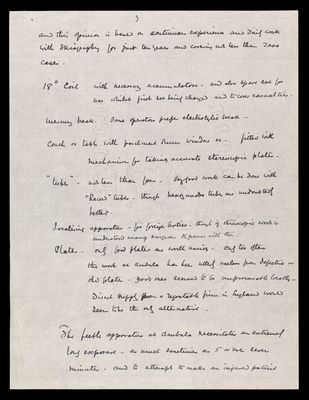 3
and this opinion is based on continuous experience and daily work
with Skiagraphy for just ten years and covering not less than 2000
cases.
18" Coil with necessary accumulators - and also spare set for
use whilst first set being charged and to cover casualties.
Mercury break. Some operators prefer electrolytic break -
Couch or table with parchment window &c - fitted with
mechanism for taking accurate stereoscopic plates.
"tubes" - not less than four. Very good work can be done with
"Record" tubes - though heavy anode tubes are undoubtedly
better.
Localising apparatus - for foreign bodies - though if stereoscopic work is
understood many surgeons dispense with this.
Plates - only good plates are worth using. Only too often
the work at Ambala has been utterly useless from defective or
old plates - good ones seemed to be unprocurable locally -
Direct supply from a reputable firm in England would
seem to be the only alternative.
The feeble apparatus at Ambala necessitates an extremely
long exposure - as much sometimes as 5 or even seven
minutes - and to attempt to make an injured patient